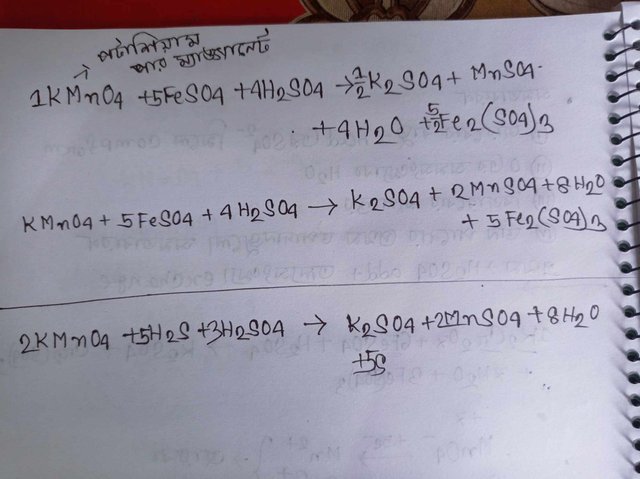 পটাশিয়াম
পার ম্যাঙ্গানেট
1KMnO4 + 5FeSO4 + 4H2SO4 → 1/2 K2SO4 + MnSO4
+ 4H2O + 5/2 Fe2(SO4)3
KMnO4 + 5FeSO4 + 4H2SO4 → K2SO4 + 2MnSO4 + 8H2O
+ 5Fe2(SO4)3
2KMnO4 + 5H2S + 3H2SO4 → K2SO4 + 2MnSO4 + 8H2O
+5S